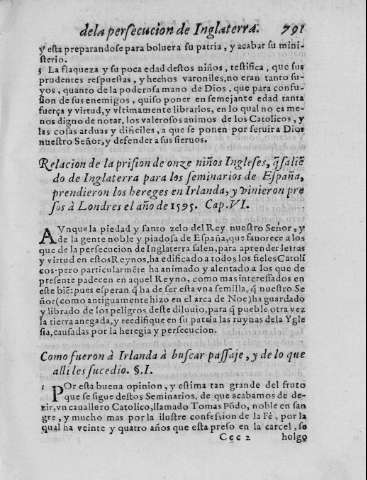 dela persecucion de Inglaterra. 791
y esta preparandose para boluer a su patria, y acabar su mini-
sterio.
5 La flaqueza y su poca edad destos niños, testifica, que sus
prudentes respuestas, y hechos varoniles, no eran tanto su-
yos, quanto de la poderosa mano de Dios, que para confu-
sion de sus enemigos, quiso poner en semejante edad tanta
fuerça y virtud, y vltimamente librarlos, en lo qual no es me-
nos digno de notar, los valerosos animos de los Catolicos, y
las cosas arduas y dificiles, a que se ponen por seruir a Dios
nuestro Señor, y defender a sus sieruos.
Relacion de la prision de onze niños Ingleses, q̃ salie
do de Inglaterra para los seminarios de España,
prendieron los hereges en Irlanda, y vinieron pre
sos à Londres el año de 1595. Cap. VI.
AVnque la piedad y santo zelo del Rey nuestro Señor, y
de la gente noble y piadosa de España, que fauorece a los
que de la persecucion de Inglaterra salen, para aprender letras
y virtud en estos Reynos, ha edificado a todos los fieles Catoli
cos: pero particularmẽte ha animado y alentado a los que de
presente padecen en aquel Reyno, como mas interessados en
este biẽ: pues esperan q̃ ha de ser esta vna semilla, q̃ nuestro Se
ñor (como antiguamente hizo en el arca de Noe) ha guardado
y librado de los peligros deste diluuio, para q̃ pueble otra vez
la tierra anegada, y reedifique en su patria las ruynas dela Ygle
sia, causadas por la heregia y persecucion.
Como fueron à Irlanda à buscar passaje, y de lo que
alli les sucedio. §. I.
1 POr esta buena opinion, y estima tan grande del fruto
que se sigue destos Seminarios, de que acabamos de de-
zir, vn cauallero Catolico, llamado Tomas Põdo, noble en san
gre, y mucho mas por la ilustre confession de la Fè, por la
qual ha veinte y quatro años que esta preso en la carcel, se
Ccc 2 holgo